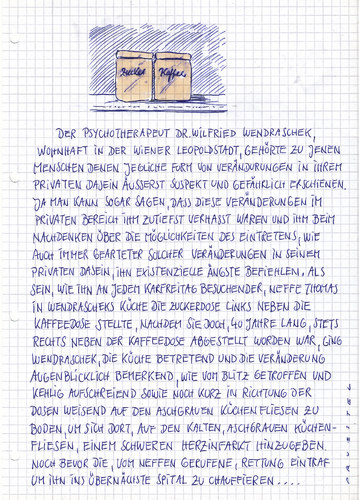 Zucker Kaffee
DER PSYCHOTHERAPEUT DR. WILFRIED WENDRASCHEK,
WOHNHAFT IN DER WIENER LEOPOLDSTADT, GEHÖRTE ZU JENEN
MENSCHEN DENEN JEGLICHE FORM VON VERÄNDURUNGEN IN IHREM
PRIVATEN DASEIN ÄUSSERST SUSPEKT UND GEFÄHRLICH ERSCHIENEN.
JA MAN KANN SOGAR SAGEN, DASS DIESE VERÄNDERUNGEN IM
PRIVATEN BEREICH IHM ZUTIEFST VERHASST WAREN UND IHN BEIM
NACHDENKEN ÜBER DIE MÖGLICHKEITEN DES EINTRETENS, WIE
AUCH IMMER GEARTETER SOLCHER VERÄNDERUNGEN IN SEINEM
PRIVATEN DASEIN, IHN EXISTENZIELLE ÄNGSTE BEFIEHLEN. ALS
SEIN, WIE IHN AN JEDEM KARFREITAG BESUCHENDER, NEFFE THOMAS
IN WENDRASCHEKS KÜCHE DIE ZUCKERDOSE LINKS NEBEN DIE
KAFFEEDOSE STELLTE, NACHDEM SIE DOCH, 40 JAHRE LANG, STETS
RECHTS NEBEN DER KAFFEEDOSE ABGESTELLT WORDEN WAR, GING
WENDRASCHEK, DIE KÜCHE BETRETEND UND DIE VERÄNDERUNG
AUGENBLICKLICH BEMERKEND, WIE VOM BLITZ GETROFFEN UND
KEHLIG AUFSCHREIEND SOWIE NOCH KURZ IN RICHTUNG DER
DOSEN WEISEND AUF DEN ASCHGRAUEN KÜCHENFLIESEN ZU
BODEN, UM SICH DORT, AUF DEN KALTEN, ASCHGRAUEN KÜCHEN-
FLIESEN, EINEM SCHWEREN HERZINFARKT HINZUGEBEN.
NOCH BEVOR DIE, VOM NEFFEN GERUFENE, RETTUNG EINTRAF
UM IHN INS ÜBERNÄCHSTE SPITAL ZU CHAUFFIEREN....